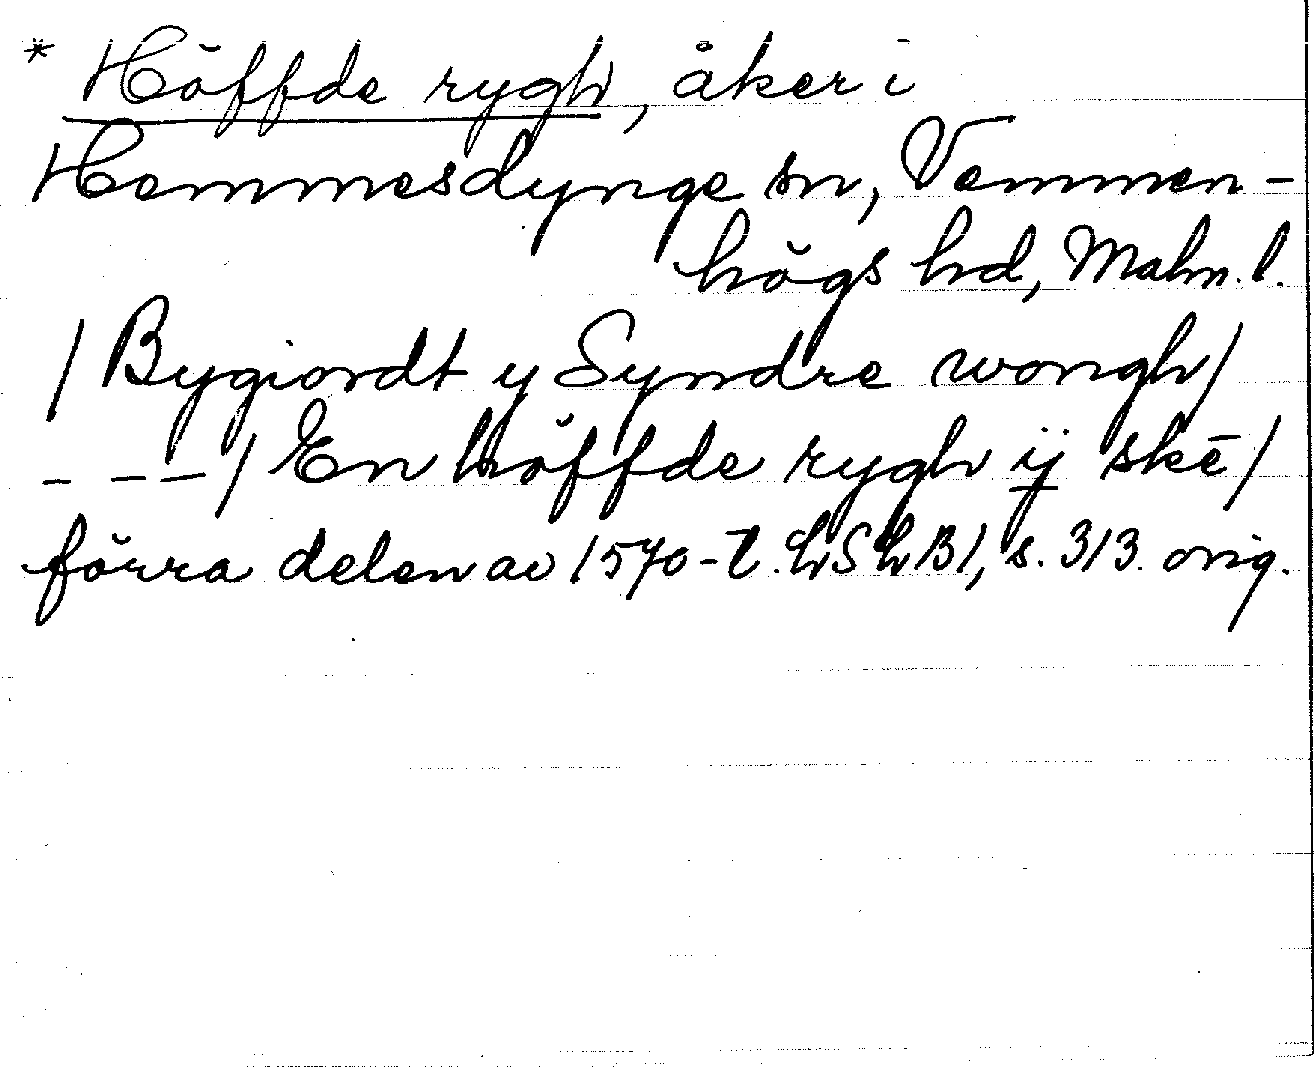 * Höffde rygh, åker i
Hemmesdynge sn, Vemmen-
högs hd, Malm. l.
/ Bygiordt y Syndre wongh /
- - - / En höffde rygh ij skē /
förra delen av 1570-t. LSLB1, s. 313. orig.